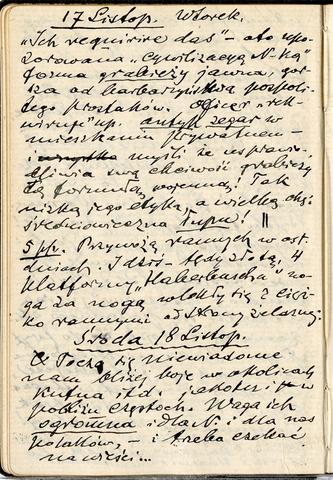 17 Listop. Wtorek.
„Ich requirire das" – oto upo-
zorowana „cywilizacyą N-ką"
forma grabieży jawna, gor-
sza od barbarzyństwa pospoli-
tego prostaków. Oficer „rek-
wiruje" np. antyk zegar w
mieszkaniu prywatnem –
i myśli że usprawie-
dliwia swą chciwość grabieży
tą formułą wojenną! Tak
nizką jego etyka, a wielką chęć
średniowieczna łupu!
5 pp. Przywożą rannych w ost.
dniach. I dziś tędy złotą, 4
platformy „Haberbuscha" no-
ga za nogą wlokły się z cięż-
ko rannymi od strony żelaznej.
Środa 18 Listop.
Toczą się niewiadome
nam bliżej boje w okolicach
Kutna itd. jakoteż w
pobliżu Częstoch. Waga ich
ogromna i dla N. i dla nas
polaków, – i trzeba czekać
na wieści...